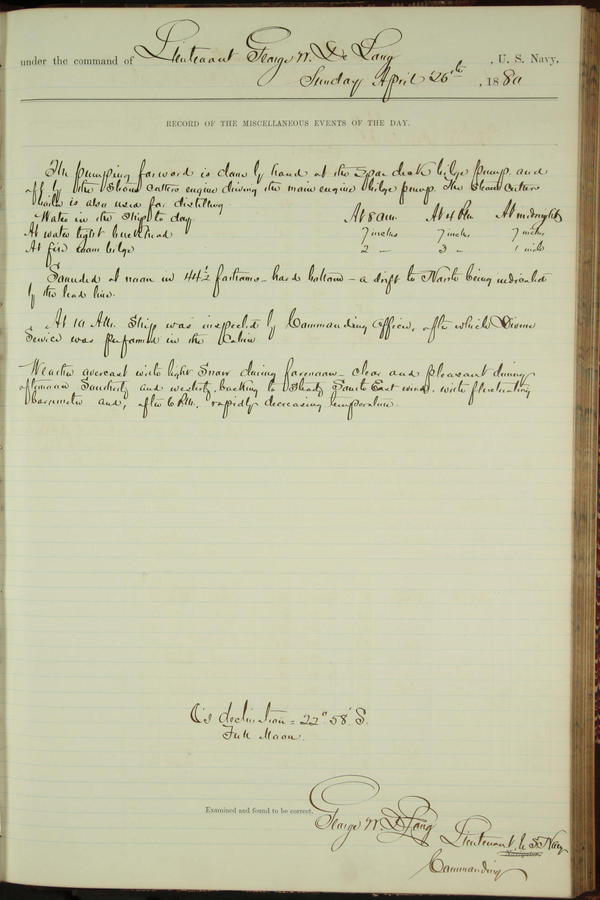 under the command of Lieutenant George W. De Long , U. S. Navy,
Sunday April 26th , 1880
RECORD OF THE MISCELLANEOUS EVENTS OF THE DAY.
The pumping forward is done by hand at the spar deck bilge pump and
aft by the Steam Cutters engine driving the main engine bilge pump. The Steam Cutters
boiler is also used for distilling.
Water in the Ship to day At 8 am At 4 Pm At midnight
At water tight bulkhead 7 inches 7 inches 7 inches
At fire room bilge 2 " 3 " 1 inch
Sounded at noon in 44½ fathoms - hard bottom - a drift to North being indicated
by the lead line.
At 10 AM. Ship was inspected by Commanding Officer, after which Divine
Service was performed in the Cabin
Weather overcast with light Snow during forenoon - clear and pleasant during
afternoon Southerly and westerly, backing to steady South East winds, with fluctuating
barometer and, after 6 P.M. rapidly decreasing temperature.
☾'s declination = 22° 58' S.
Full Moon.
Examined and found to be correct.
George W. De Long Lieutenant U. S. Navy
Navigator.
Commanding